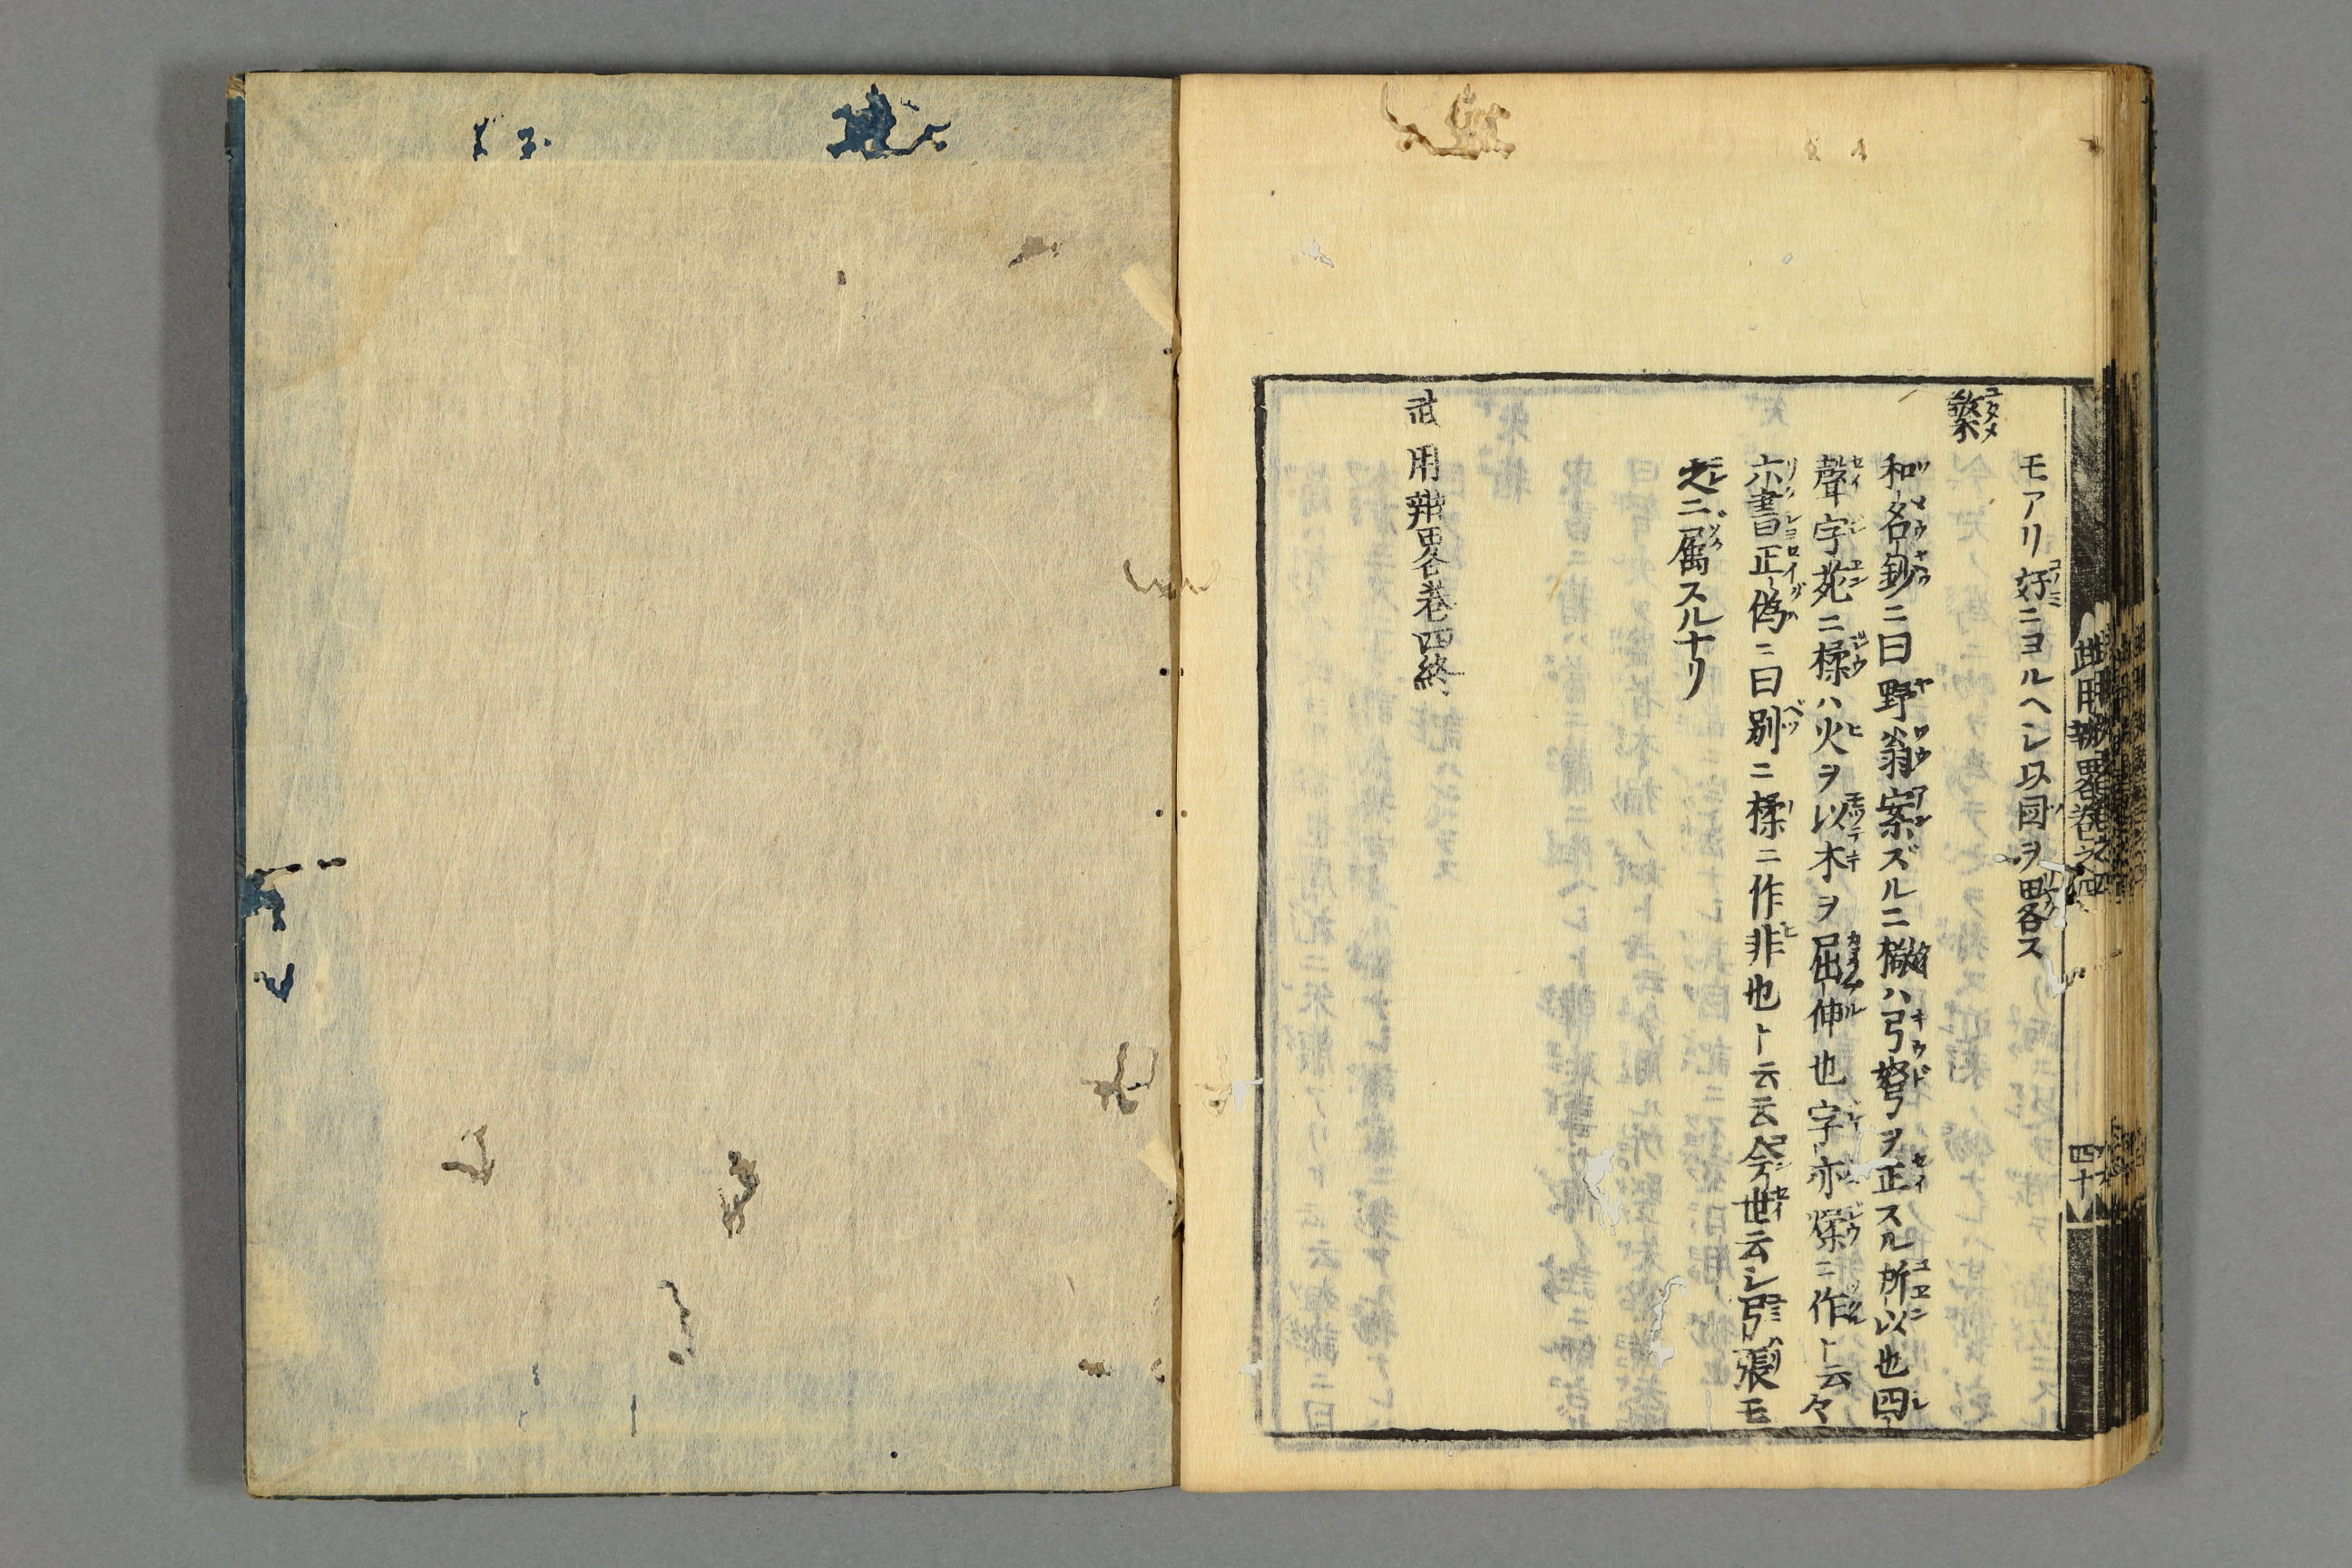 モアリ好ニヨルヘシ以図ヲ畧ス
檠
和名鈔ニ曰野翁案ズルニ檠ハ弓弩ヲ正スル所以也四
聲字苑ニ揉ハ火ヲ以木ヲ屈伸也字亦煣ニ作ト云々
六書正偽ニ曰別ニ揉ニ作非也ト云云今世云シ弓張モ
之ニ属スルナリ
武用辨畧巻四終
武用辨畧巻之四
四十